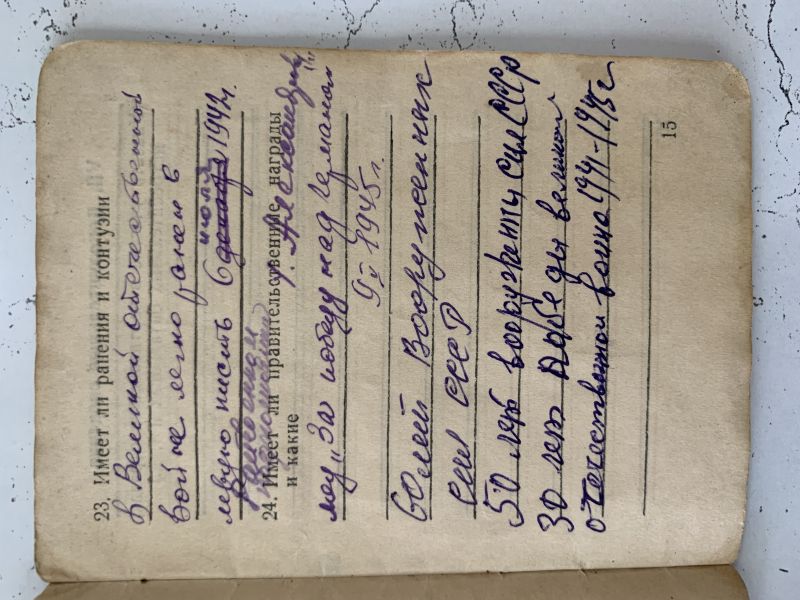 23. Имеет ли ранения и контузии
в Великой отечественной
войне легко ранен в
июля
левую кисть 6 1942г.
Ранением
24. Имеет ли правительственные награды
г. Александрии
и какие
мед „За победу над Германией
9/V 1945 г.
60 лет Вооруженных
сил СССР
50 лет вооружениу сил СССР
30 лет победы великой
отечественной войне 1941-1945 г
15